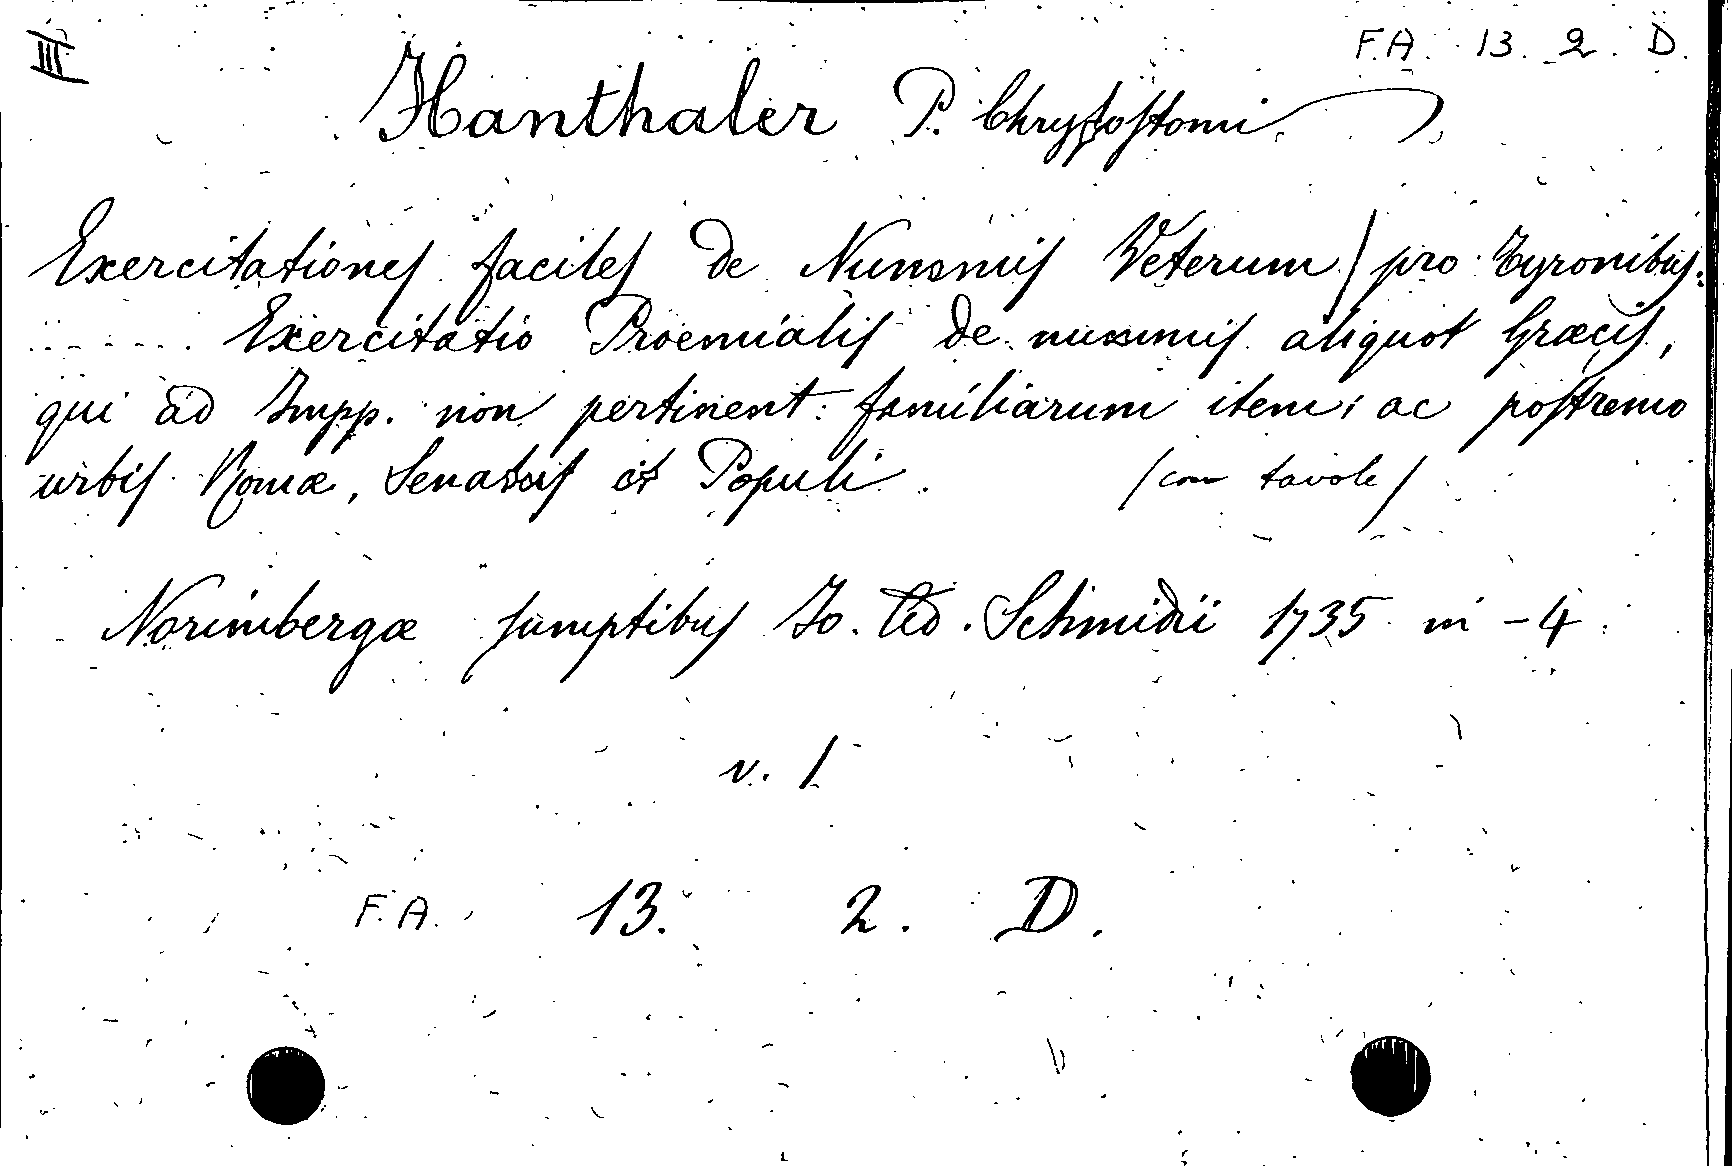 III
F.A. 13. 2. D.
Hanthaler P. Chrysostomi
Exercitationes faciles de Nummis Veterum / pro Tyronibus.
....... Exercitatio Proemialis de nummis aliquot Græcis,
qui ad Impp. non pertinent: familiarum item; ac postremo
urbis Romæ, Senatus et Populi. /con tavole/
Norimbergæ sumptibus Jo. Schmidii 1735 in-4.
v. 1
F.A. 13. 2. D.